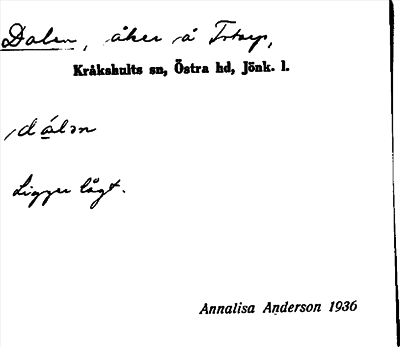 Dalen, åker å Trtorp,
Kråkshults sn, Östra hd, Jönk. l.
Ligger lågt.
Annalisa Anderson 1936